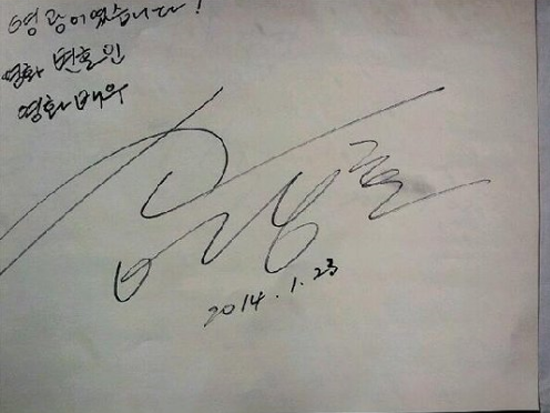 영광이었습니다!
영화 변호인
영화배우
2014.1.23